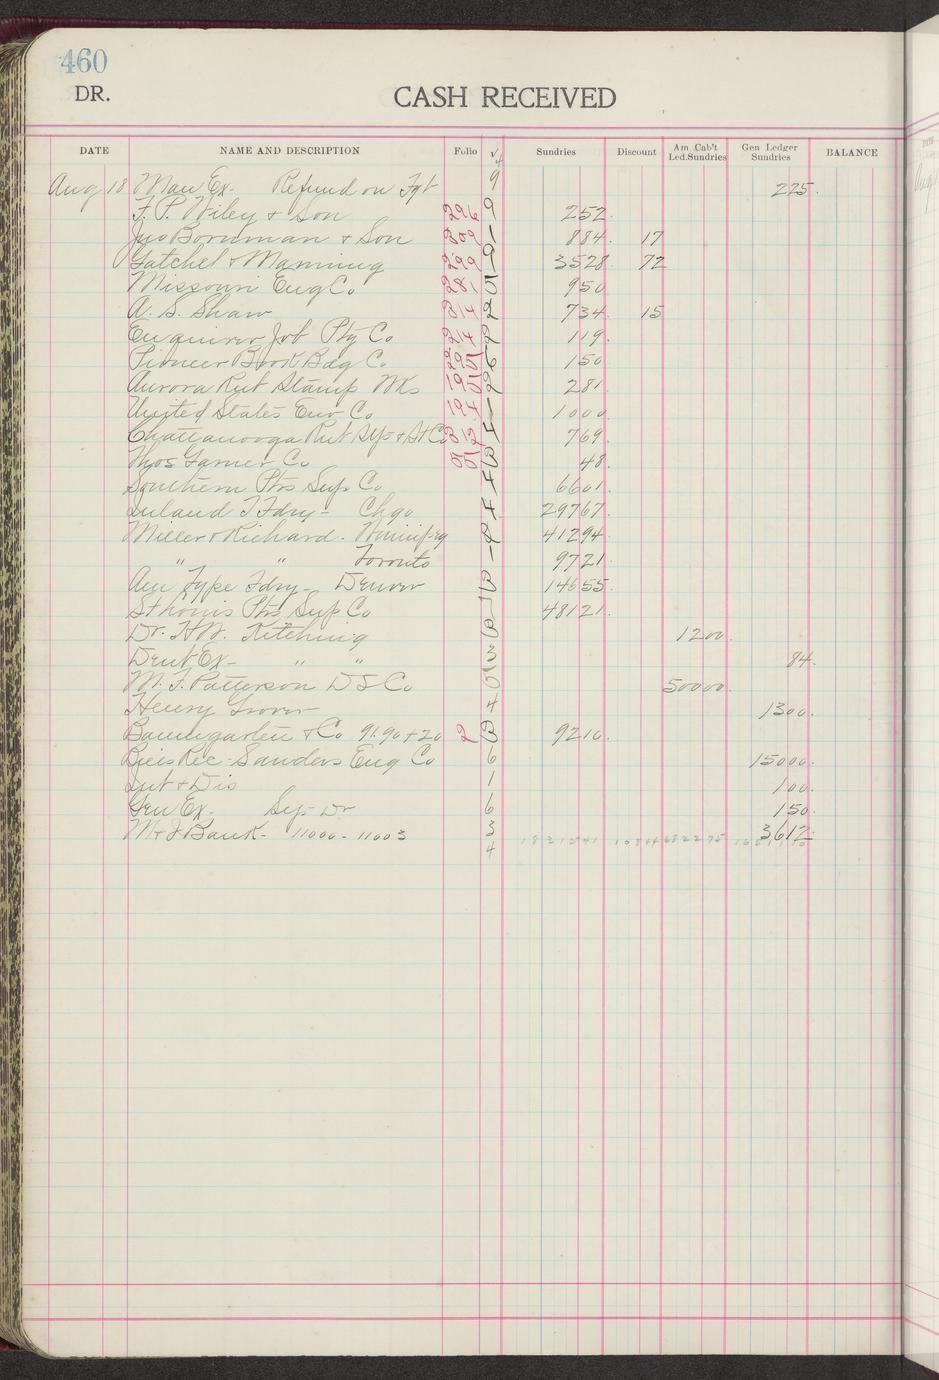 460
DR. CASH RECEIVED
DATE NAME AND DESCRIPTION Folio Sundries Discount Am Cab't Led.Sundries Gen Ledger Sundries BALANCE
Aug 18 Man Ex. Refund on Fgt 9 225.
F. P. Wiley & Son 296 9 252.
Jno Bornman & Son 309 1 884. 17
Gatchel & Manning 299 9 3528. 72
Missouri Eng Co 281 5 950
A. S. Shaw 314 2 734. 15
Enquirer Job Ptg Co 119.
Pioneer Book Bdg Co 150.
Aurora Rub Stamp Wks 281.
United States Env Co 1000.
Chattanooga Rub Stp & St Co 769.
Thos Garner Co 48.
Southern Ptrs Sup Co 4 6601.
Inland T Fdry - Chgo 4 29767.
Miller & Richard - Winnipeg 41294.
" " Toronto 9721.
Am Type Fdry - Denver 14655.
St Louis Ptrs Sup Co 1 48121.
Dr. H.W. Kitching 1200.
Dent Ex - " " 3 84.
M. F. Patterson D S Co 5 50000.
Henry Grover 4 1300.
Baumgarten & Co 91.90 + 20 2 9210.
Bills Rec - Sanders Eng Co 6 15000.
Int & Dis 1 100.
Gen Ex. 6 150.
M & I Bank - 11000 - 11003 3 3612.
4